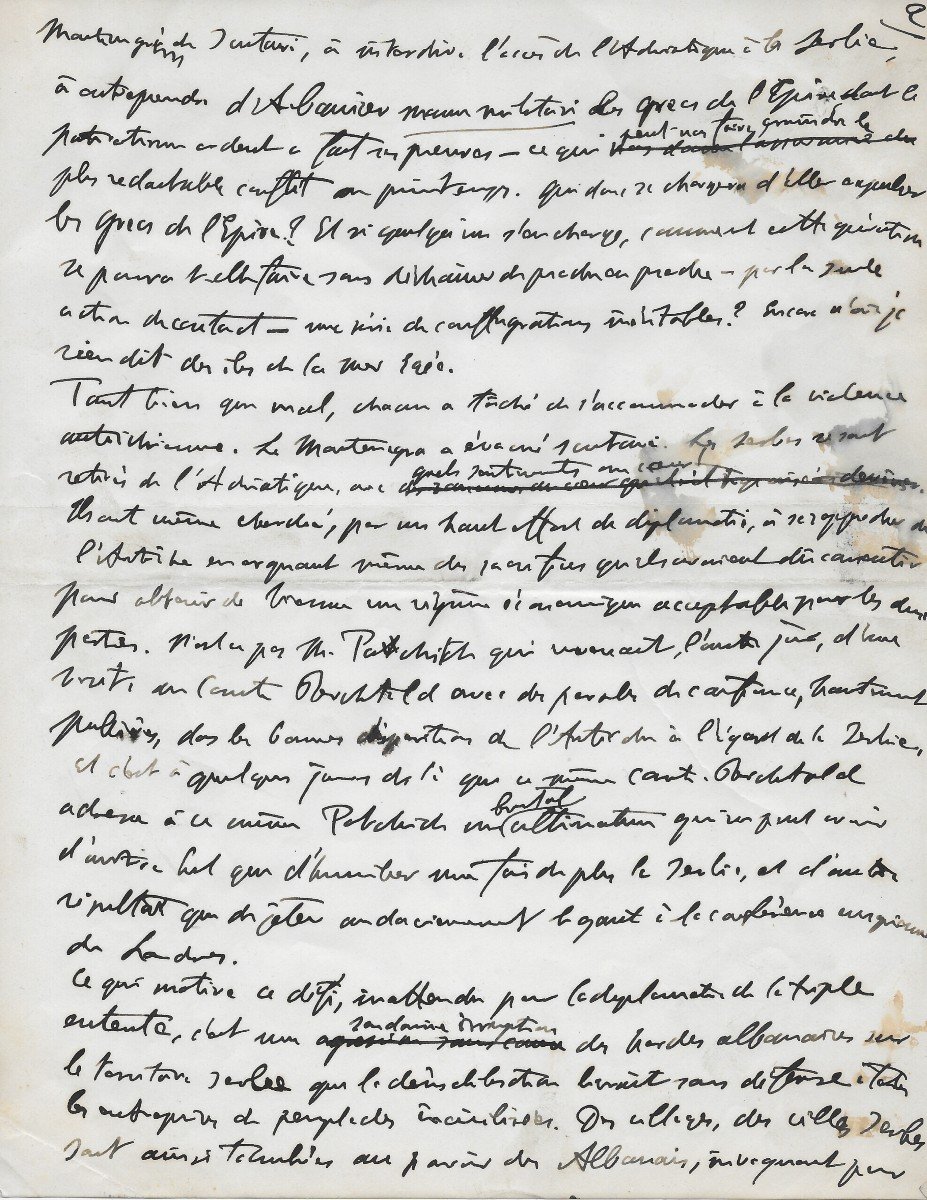 2
Monténégrins de Scutari, à interdire l'accès de l'Adriatique à la Serbie,
à entreprendre d'Albaniser manu militari les grecs de l'Epire dont le
patriotisme ardent a fait ses preuves — ce qui peut nous faire craindre le
plus redoutable conflit au printemps. Qui donc se chargera d'aller expulser
les grecs de l'Epire? Et si quelqu'un s'en charge, comment cette opération
se pourra-t-elle faire sans déchaîner de proche en proche — par la seule
action de contact — une série de conflagrations inévitables? Encore n'ai-je
rien dit des îles de la mer Egée.
Tant bien que mal, chacun a tâché de s'accommoder à la violence
autrichienne. Le Montenegro a évacué Scutari. Les Serbes se sont
retirés de l'Adriatique, avec quels sentiments au coeur
Ils ont même cherché, par un haut effort de diplomatie, à se rapprocher de
l'Autriche en arguant même des sacrifices qu'ils avaient dû consentir
pour obtenir de Vienne un régime économique acceptable pour les deux
parties. N'est-ce pas M. Patchitch qui revenait, l'autre jour, d'une
visite au Comte Berchtold avec des paroles de confiance, hautement
publiées, dans les bonnes dispositions de l'Autriche à l'égard de la Serbie,
et c'est à quelques jours de là que ce même comte Berchtold
adresse à ce même Patchich un brutal ultimatum qui ne peut avoir
d'autre but que d'humilier une fois de plus la Serbie, et d'autre
résultat que de jeter audacieusement le gant à la conférence européenne
de Londres.
Ce qui motive ce défi, inattendu pour la diplomatie de la triple
entente, c'est une soudaine irruption des hordes albanaises sur
le territoire serbe que la démobilisation livrait sans défense à toutes
les entreprises de peuplades incivilisées. Des villages, des villes Serbes
sont ainsi tombées au pouvoir des Albanais, invoquant pour